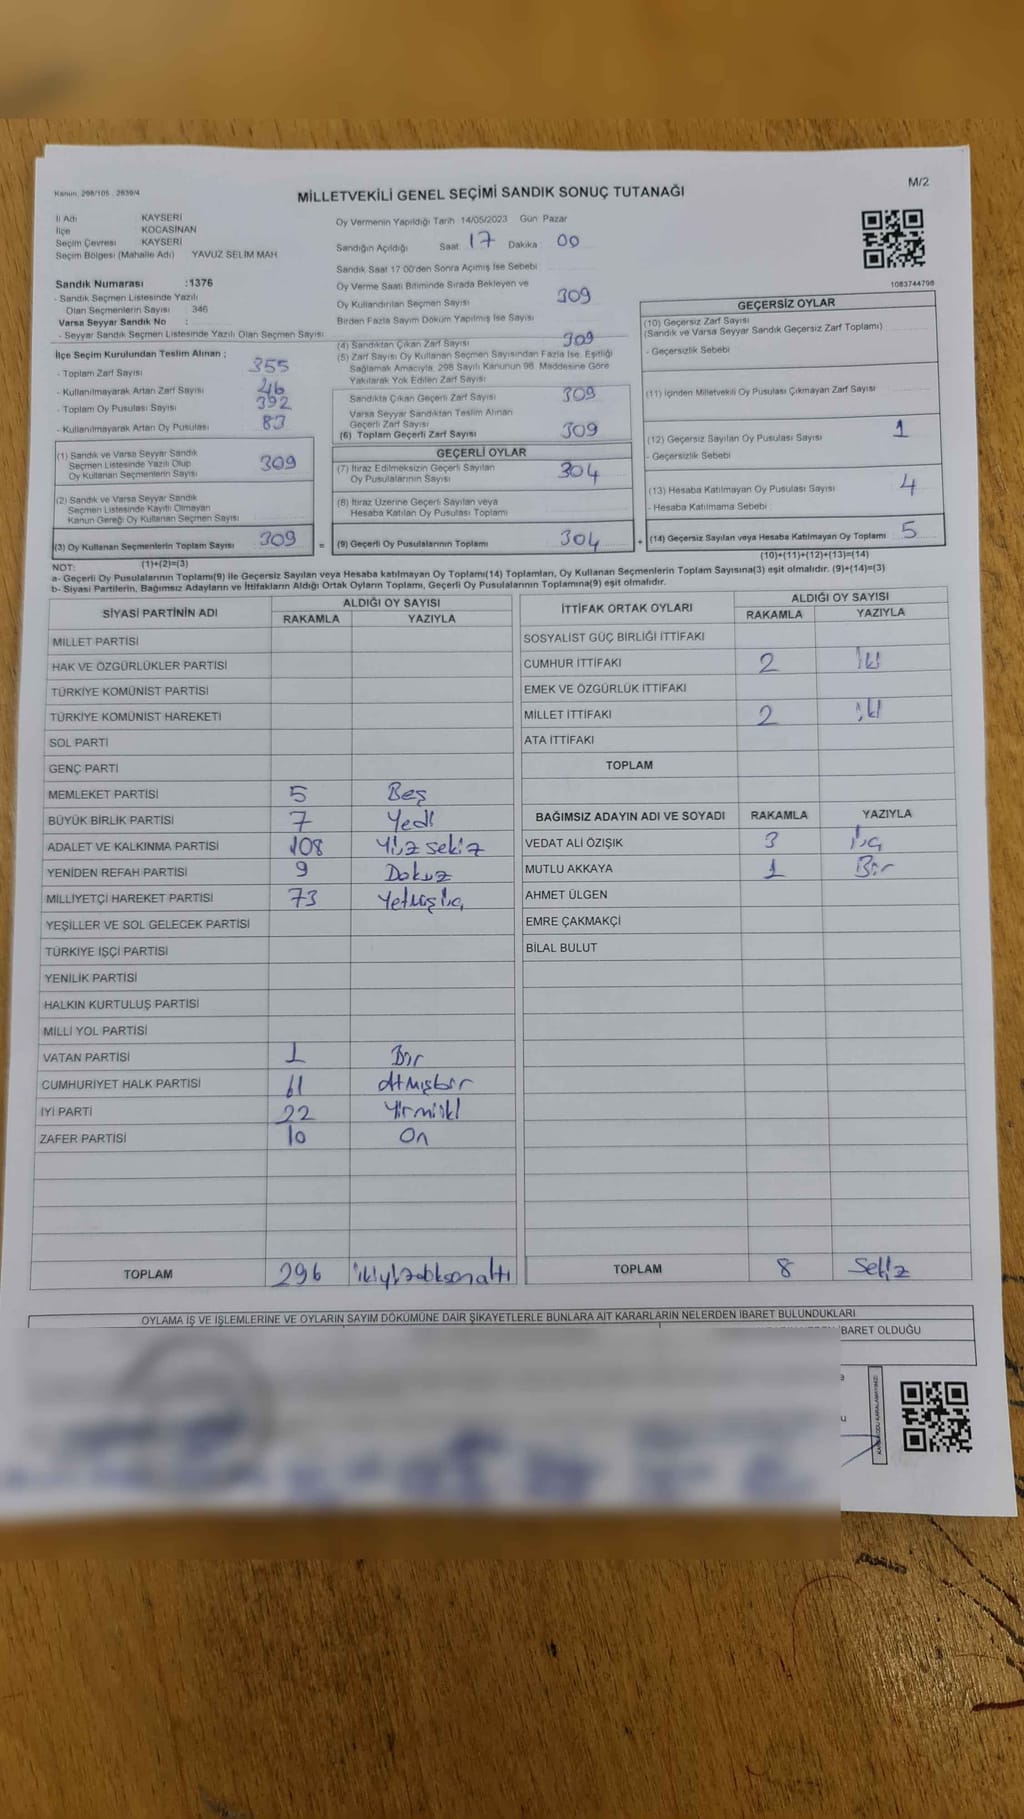 Kanun: 298/105 , 2839/4
MİLLETVEKİLİ GENEL SEÇİMİ SANDIK SONUÇ TUTANAĞI
M/2
İl Adı KAYSERİ
İlçe KOCASİNAN
Seçim Çevresi KAYSERİ
Seçim Bölgesi (Mahalle Adı) YAVUZ SELİM MAH
Sandık Numarası :1376
- Sandık Seçmen Listesinde Yazılı
Olan Seçmenlerin Sayısı : 346
Varsa Seyyar Sandık No :
- Seyyar Sandık Seçmen Listesinde Yazılı Olan Seçmen Sayısı:
İlçe Seçim Kurulundan Teslim Alınan ;
- Toplam Zarf Sayısı 355
- Kullanılmayarak Artan Zarf Sayısı 46
- Toplam Oy Pusulası Sayısı 392
- Kullanılmayarak Artan Oy Pusulası 83
(1) Sandık ve Varsa Seyyar Sandık
Seçmen Listesinde Yazılı Olup
Oy Kullanan Seçmenlerin Sayısı 309
(2) Sandık ve Varsa Seyyar Sandık
Seçmen Listesinde Kayıtlı Olmayan
Kanun Gereği Oy Kullanan Seçmen Sayısı
(3) Oy Kullanan Seçmenlerin Toplam Sayısı 309 =
(1)+(2)=(3)
Oy Vermenin Yapıldığı Tarih 14/05/2023 Gün Pazar
Sandığın Açıldığı Saat 17 Dakika 00
Sandık Saat 17 00'den Sonra Açımış İse Sebebi
Oy Verme Saati Bitiminde Sırada Bekleyen ve
Oy Kullandırılan Seçmen Sayısı 309
Birden Fazla Sayım Döküm Yapılmış İse Sayısı
(4) Sandıktan Çıkan Zarf Sayısı 309
(5) Zarf Sayısı Oy Kullanan Seçmen Sayısından Fazla İse, Eşitliği
Sağlamak Amacıyla, 298 Sayılı Kanunun 98. Maddesine Göre
Yakılarak Yok Edilen Zarf Sayısı
Sandıkta Çıkan Geçerli Zarf Sayısı 309
Varsa Seyyar Sandıktan Teslim Alınan
Geçerli Zarf Sayısı
(6) Toplam Geçerli Zarf Sayısı 309
GEÇERLİ OYLAR
(7) İtiraz Edilmeksizin Geçerli Sayılan
Oy Pusulalarının Sayısı 304
(8) İtiraz Üzerine Geçerli Sayılan veya
Hesaba Katılan Oy Pusulası Toplamı
(9) Geçerli Oy Pusulalarının Toplamı 304 +
1083744798
GEÇERSİZ OYLAR
(10) Geçersiz Zarf Sayısı
(Sandık ve Varsa Seyyar Sandık Geçersiz Zarf Toplamı)
- Geçersizlik Sebebi
(11) İçinden Milletvekili Oy Pusulası Çıkmayan Zarf Sayısı
(12) Geçersiz Sayılan Oy Pusulası Sayısı 1
- Geçersizlik Sebebi
(13) Hesaba Katılmayan Oy Pusulası Sayısı 4
- Hesaba Katılmama Sebebi
(14) Geçersiz Sayılan veya Hesaba Katılmayan Oy Toplamı 5
(10)+(11)+(12)+(13)=(14)
NOT:
a- Geçerli Oy Pusulalarının Toplamı(9) ile Geçersiz Sayılan veya Hesaba katılmayan Oy Toplamı(14) Toplamları, Oy Kullanan Seçmenlerin Toplam Sayısına(3) eşit olmalıdır. (9)+(14)=(3)
b- Siyasi Partilerin, Bağımsız Adayların ve İttifakların Aldığı Ortak Oyların Toplamı, Geçerli Oy Pusulalarının Toplamına(9) eşit olmalıdır.
SİYASİ PARTİNİN ADI
ALDIĞI OY SAYISI
RAKAMLA YAZIYLA
MİLLET PARTİSİ
HAK VE ÖZGÜRLÜKLER PARTİSİ
TÜRKİYE KOMÜNİST PARTİSİ
TÜRKİYE KOMÜNİST HAREKETİ
SOL PARTİ
GENÇ PARTİ
MEMLEKET PARTİSİ 5 Beş
BÜYÜK BİRLİK PARTİSİ 7 Yedi
ADALET VE KALKINMA PARTİSİ 108 Yüz sekiz
YENİDEN REFAH PARTİSİ 9 Dokuz
MİLLİYETÇİ HAREKET PARTİSİ 73 Yetmişüç
YEŞİLLER VE SOL GELECEK PARTİSİ
TÜRKİYE İŞÇİ PARTİSİ
YENİLİK PARTİSİ
HALKIN KURTULUŞ PARTİSİ
MİLLİ YOL PARTİSİ
VATAN PARTİSİ 1 Bir
CUMHURİYET HALK PARTİSİ 61 Atmışbir
İYİ PARTİ 22 Yirmiiki
ZAFER PARTİSİ 10 On
TOPLAM 296 ikiyüzdoksanaltı
İTTİFAK ORTAK OYLARI
ALDIĞI OY SAYISI
RAKAMLA YAZIYLA
SOSYALİST GÜÇ BİRLİĞİ İTTİFAKI
CUMHUR İTTİFAKI 2 İki
EMEK VE ÖZGÜRLÜK İTTİFAKI
MİLLET İTTİFAKI 2 iki
ATA İTTİFAKI
TOPLAM
BAĞIMSIZ ADAYIN ADI VE SOYADI RAKAMLA YAZIYLA
VEDAT ALİ ÖZIŞIK 3 Üç
MUTLU AKKAYA 1 Bir
AHMET ÜLGEN
EMRE ÇAKMAKÇİ
BİLAL BULUT
TOPLAM 8 Sekiz
OYLAMA İŞ VE İŞLEMLERİNE VE OYLARIN SAYIM DÖKÜMÜNE DAİR ŞİKAYETLERLE BUNLARA AİT KARARLARIN NELERDEN İBARET BULUNDUKLARI
İBARET OLDUĞU